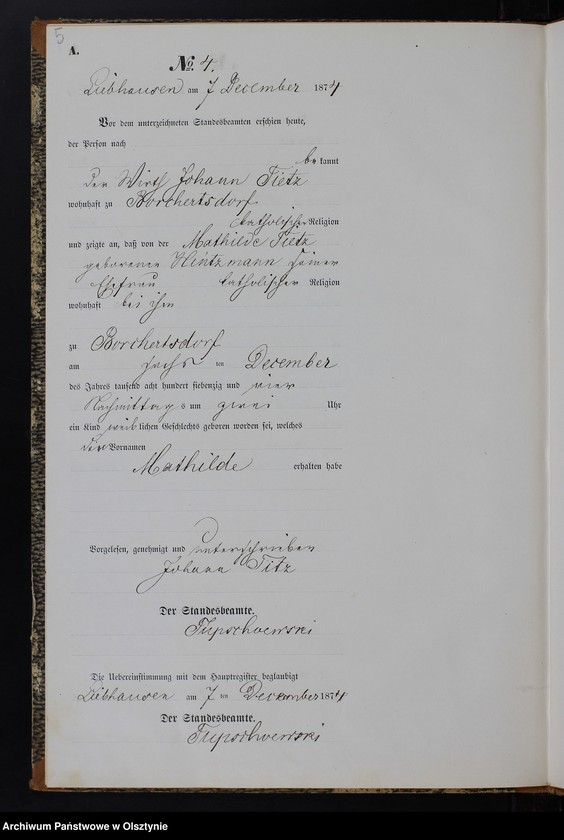 5
A.
№ 4.
Liebhausen am 7 December 1874
Vor dem unterzeichneten Standesbeamten erschien heute,
der Person nach
bekannt
der Wirth Johann Tietz
wohnhaft zu Borchertsdorf
katholischer Religion
und zeigte an, daß von der Mathilde Tietz
geborenen Hintzmann seiner
Ehefrau katholischer Religion
wohnhaft bei ihm
zu Borchertsdorf
am sechsten December
des Jahres tausend acht hundert siebenzig und vier
Nachmittags um zwei Uhr
ein Kind weiblichen Geschlechts geboren worden sei, welches
die Vornamen
Mathilde erhalten habe
Vorgelesen, genehmigt und unterschrieben
Johann Titz
Der Standesbeamte.
Die Uebereinstimmung mit dem Hauptregister beglaubigt
Liebhausen am 7 ten December 1874
Der Standesbeamte.
Archiwum Państwowe w Olsztynie